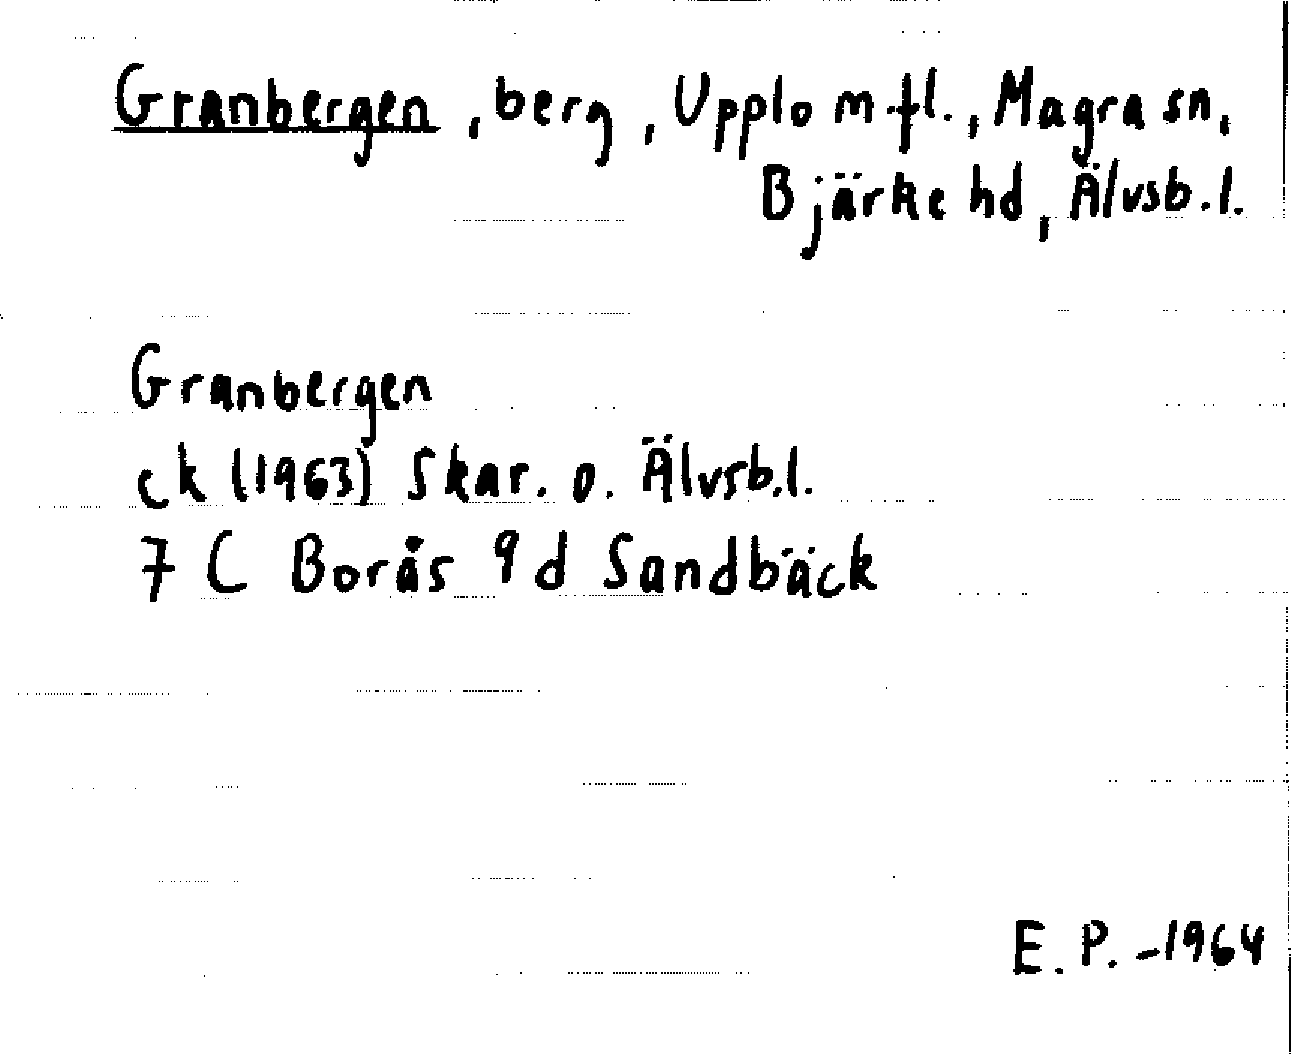 Granbergen, berg, Upplo m fl., Magra sn,
Bjärke hd, Älvsb.l.
Granbergen
ck (1963) Skar. o. Älvsb.l.
7 C Borås 9 d Sandbäck
E. P. -1964